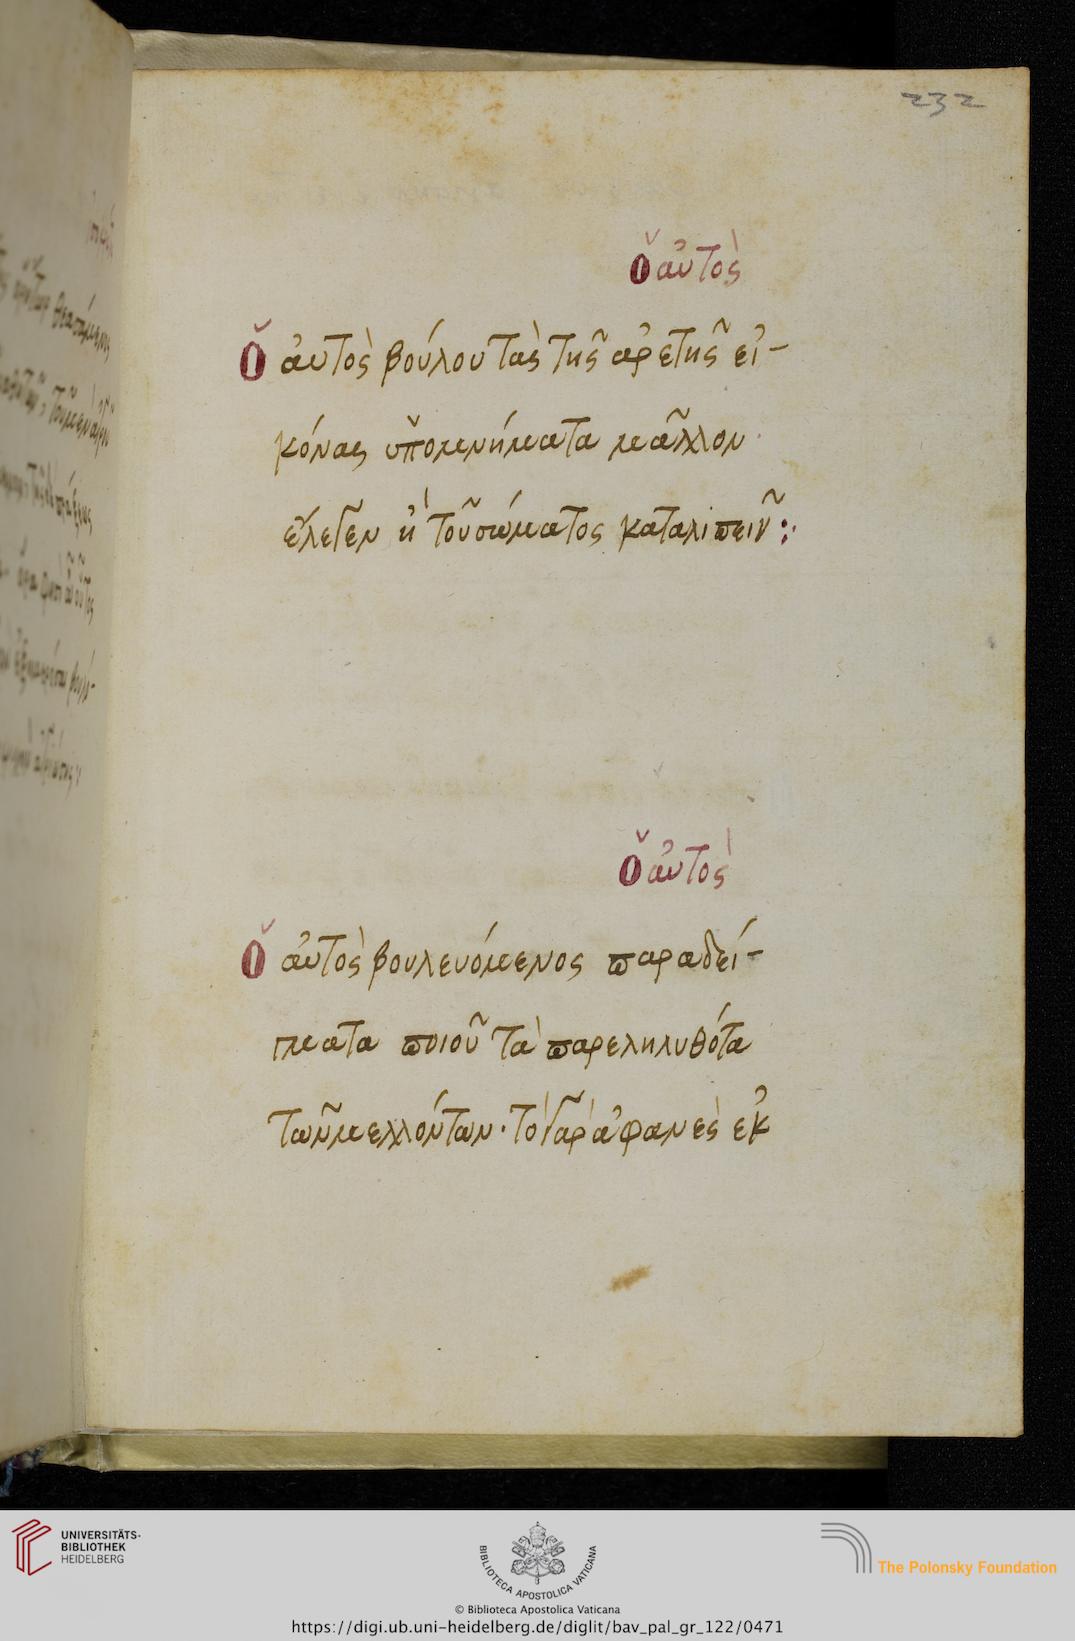 232
Ὁ αὐτὸς
Ὁ αὐτὸς βούλου τὰς τῆς ἀρετῆς εἰ-
κόνας ὑπομνήματα μᾶλλον
ἔλεγεν ἢ τοῦ σώματος καταλιπεῖν :·
Ὁ αὐτὸς
Ὁ αὐτὸς βουλευόμενος παραδεί-
γματα ποιοῦ τὰ παρεληλυθότα
τῶν μελλόντων · τὸ γὰρ ἀφανὲς ἐκ
UNIVERSITÄTS-
BIBLIOTHEK
HEIDELBERG
BIBLIOTECA APOSTOLICA VATICANA
The Polonsky Foundation
© Biblioteca Apostolica Vaticana
https://digi.ub.uni-heidelberg.de/diglit/bav_pal_gr_122/0471